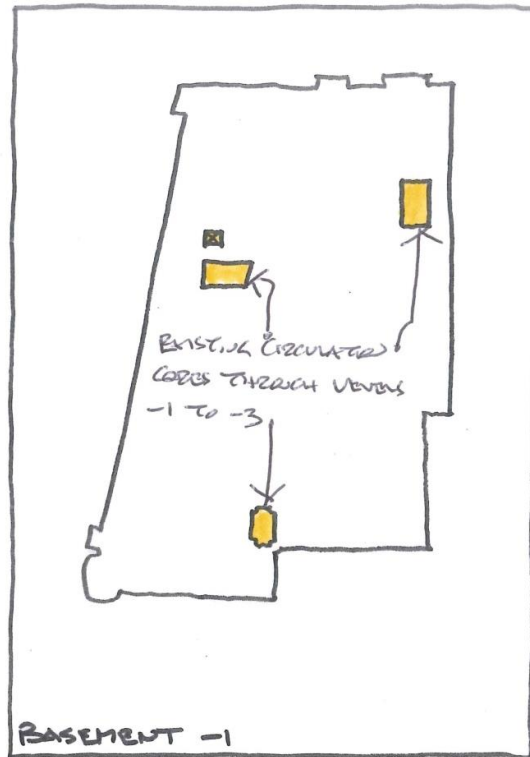 EXISTING CIRCULATION
CORES THROUGH LEVELS
-1 TO -3
BASEMENT -1